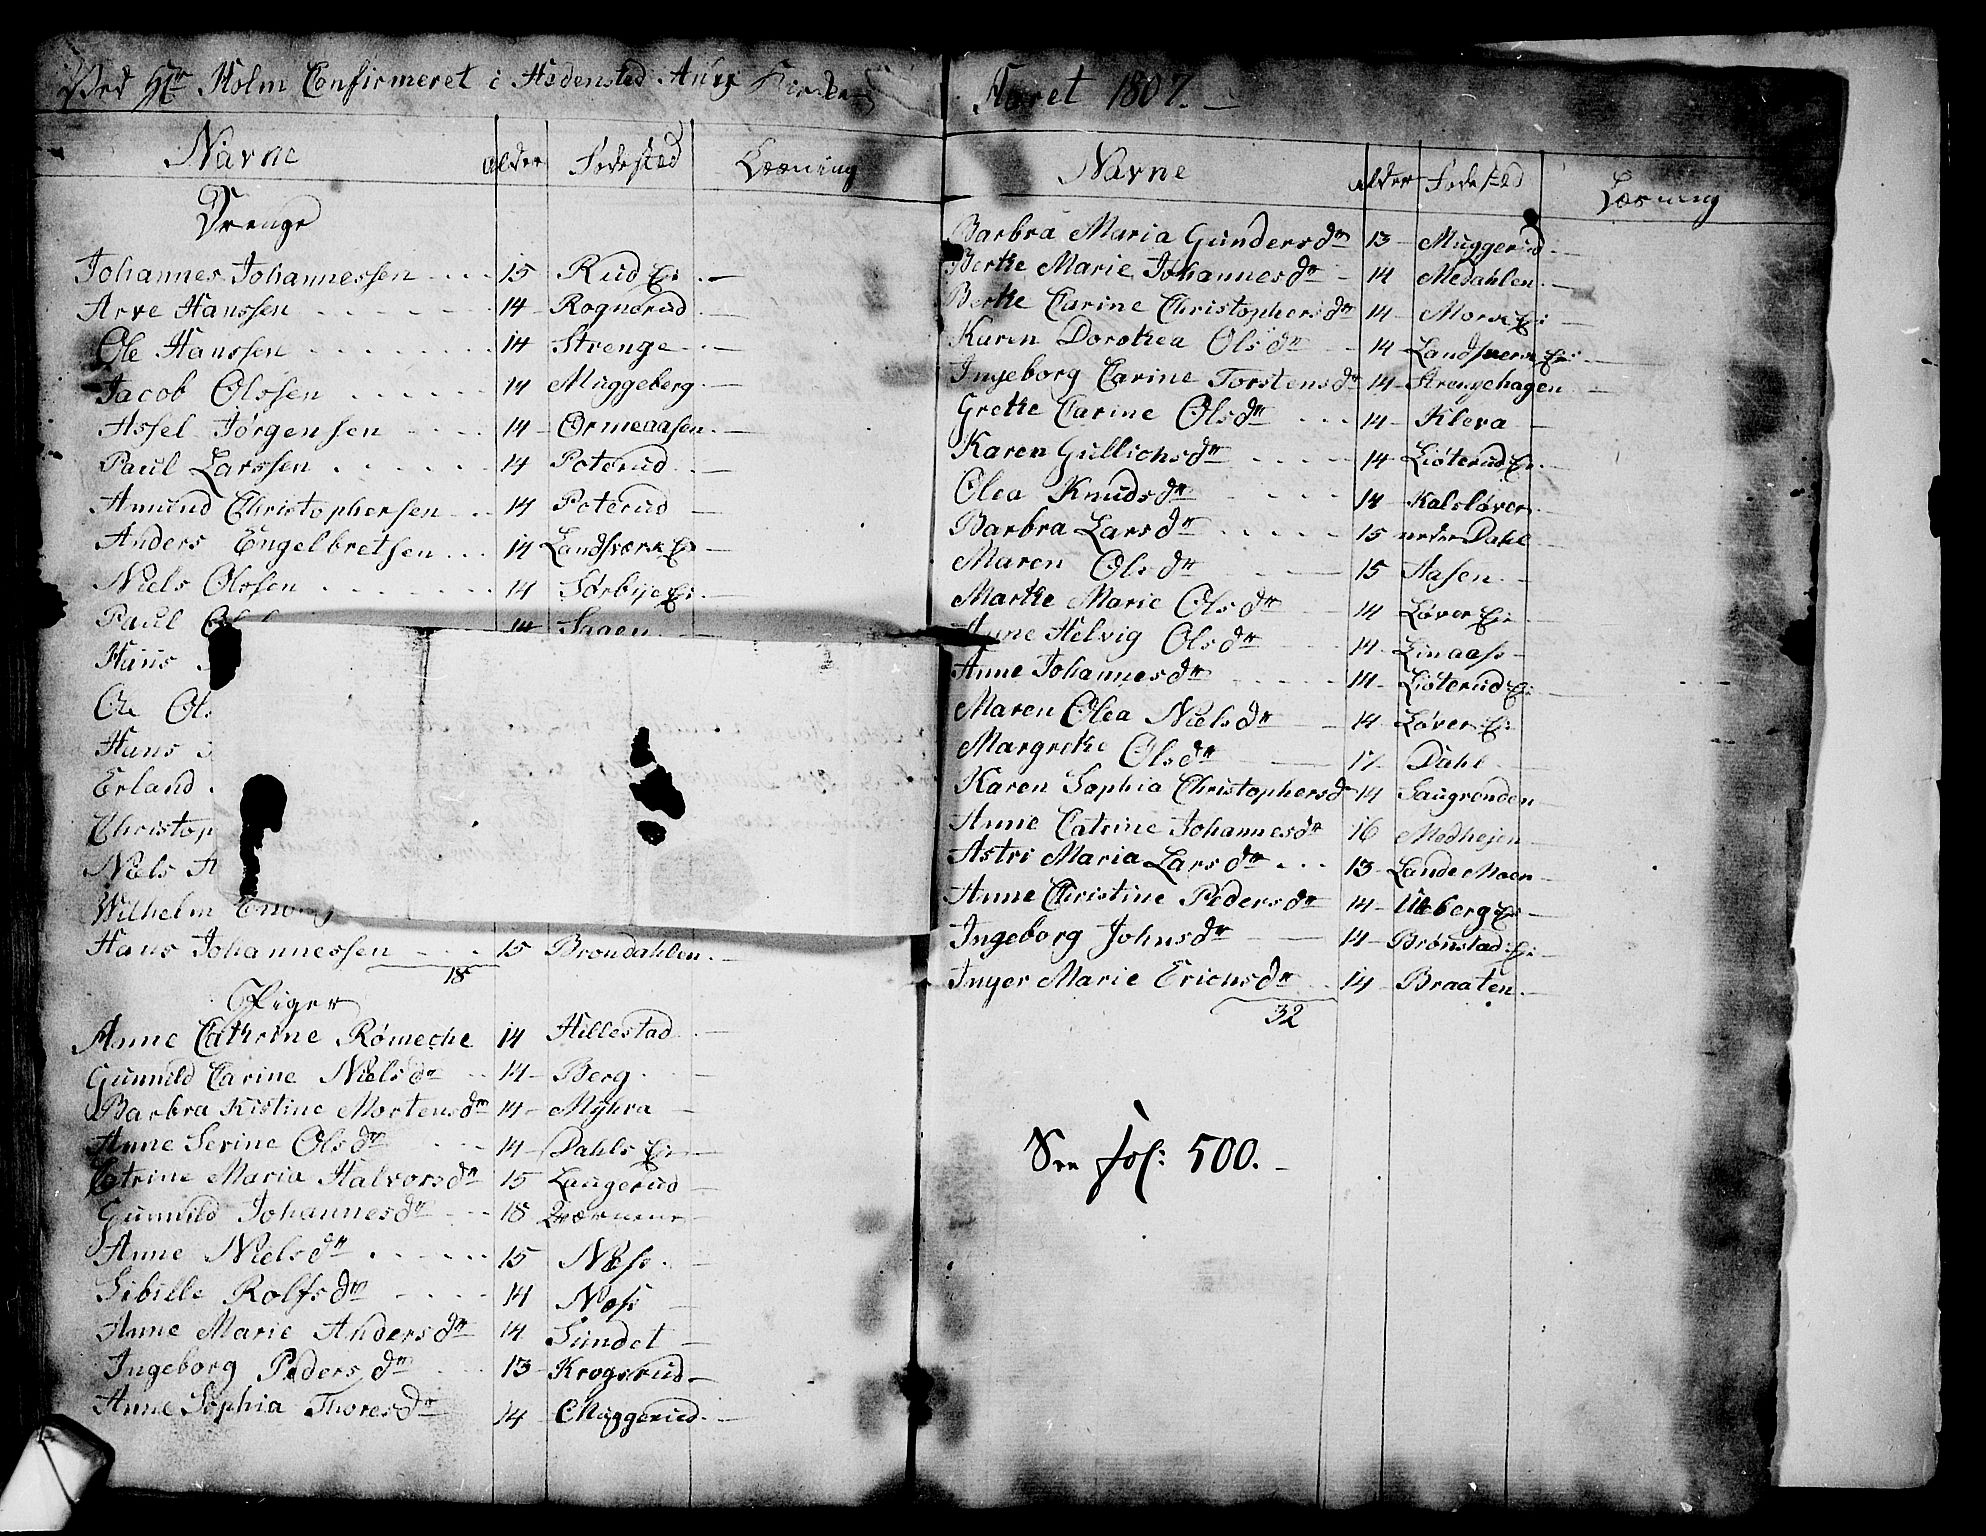 Ved Hr Holm Confirmeret i Hedensted Anex Kirke
Navne alder Fødested Læsning
Drenge
Johannes Johannessen 15 Rud Ei
Arve Hanssen 14 Rognerud
Ole Hanssen 14 Strenge
Jacob Olssen 14 Muggeberg
Assel Jørgensen 14 Ormeaasen
Paul Larssen 14 Poterud
Amund Christophersen 14 Poterud
Anders Engelbretsen 14 Landsværk Ei
Niels Olssen 14 Sørbye Ei
Paul 14 Sagen
Hans
Ole Ols
Hans
Erland
Christop
Niels
Wilhelm
Hans Johannessen 15 Brondahlen
18
Piger
Anne Cathrine Römeche 14 Hillestad
Gunnild Carine Nielsdr 14 Berg
Barbra Kistine Mortensdr 14 Myhra
Anne Serine Olsdr 14 Dahls Ei
Catrine Maria Halvorsdr 15 Laugerud
Gunnild Johannesdr 18 Qværnene
Anne Nielsdr 15 Næss
Sibille Rolfsdr 14 Næss
Anne Marie Andersdr 14 Sundet
Ingeborg Pedersdr 13 Krogsrud
Anne Sophia Thoresdr 14 Muggerud
Aaret 1807.
Navne alder Fødested Læsning
Barbra Maria Gundersdr 13 Muggerud
Berthe Marie Johannesdr 14 Medahlen
Berthe Carine Christophersdr 14 Mork Ei
Karen Dorothea Olsdr 14 Landsværk Ei
Ingeborg Carine Torstensdr 14 Strengehagen
Grethe Carine Olsdr 14 Kleva
Karen Gullichsdr 14 Liøterud Ei
Olea Knudsdr 14 Kalsløver
Barbra Larsdr 15 neder Dahl
Maren Olsdr 15 Aasen
Marthe Marie Olsdr 14 Løver Ei
Anne Helvig Olsdr 14 Linaass
Anne Johannesdr 14 Liøterud Ei
Maren Olea Nielsdr 14 Løver Ei
Margrethe Olsdr 17 Dahl
Karen Sophia Christophersdr 14 Saugrenden
Anne Catrine Johannesdr 16 Medhejen
Astri Maria Larsdr 13 Lande Moen
Anne Christine Pedersdr 14 Ulleberg Ei
Ingeborg Johnsdr 14 Brønstad Ei
Inger Marie Erichsdr 14 Braaten
32
See fol: 500.